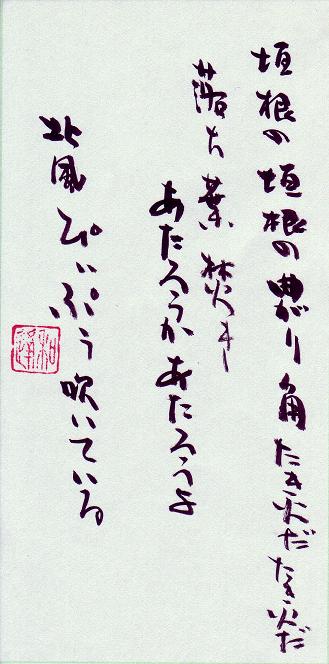 垣根の垣根の曲がり角たき火だたき火だ
落ち葉焚き
あたろうかあたろうよ
北風ぴいぷう吹いている